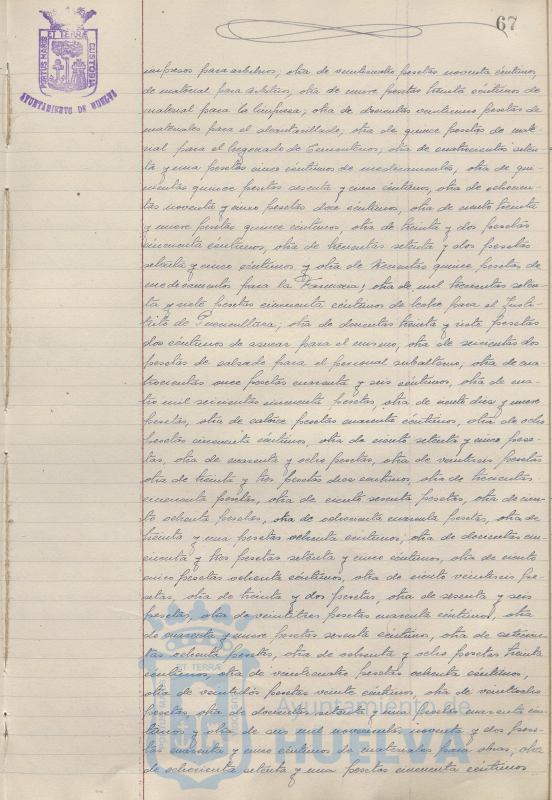 67
PORTUS MARIS ET TERRÆ CUSTODIA
AYUNTAMIENTO DE HUELVA
impresos para arbitrios, otra de veinticuatro pesetas noventa céntimos
de material para arbitrios, otra de nueve pesetas treinta céntimos de
material para la limpieza; otra de doscientas veintinueve pesetas de
materiales para el alcantarillado, otra de quince pesetas de mate-
rial para el Negociado de Cementerios, otra de cuatrocientas seten-
ta y una pesetas cinco céntimos de medicamentos, otra de qui-
nientas quince pesetas sesenta y cinco céntimos, otra de ochocien-
tas noventa y cinco pesetas doce céntimos, otra de ciento treinta
y nueve pesetas quince céntimos, otra de treinta y dos pesetas
cincuenta céntimos, otra de trescientas setenta y dos pesetas
setenta y cinco céntimos y otra de trescientas quince pesetas, de
medicamentos para la Farmacia; otra de mil trescientas seten-
ta y siete pesetas cincuenta céntimos de leche para el Insti-
tuto de Puericultura; otra de doscientas treinta y siete pesetas
dos céntimos de azucar para el mismo, otra de seiscientas dos
pesetas de calzado para el personal subalterno; otra de cua-
trocientas once pesetas cuarenta y seis céntimos, otra de cua-
tro mil seiscientas cincuenta pesetas, otra de ciento diez y nueve
pesetas, otra de catorce pesetas cuarenta céntimos, otra de ocho
pesetas cincuenta céntimos, otra de ciento setenta y cinco pese-
tas, otra de cuarenta y ocho pesetas, otra de veintiseis pesetas
otra de treinta y tres pesetas diez céntimos, otra de trescientas
cincuenta pesetas, otra de ciento sesenta pesetas, otra de cien-
to ochenta pesetas, otra de ochocientas cuarenta pesetas, otra de
treinta y una pesetas ochenta céntimos; otra de doscientas cin-
cuenta y tres pesetas setenta y cinco céntimos, otra de ciento
cinco pesetas ochenta céntimos, otra de ciento veintiseis pe-
setas, otra de treinta y dos pesetas, otra de sesenta y seis
pesetas, otra de veintitres pesetas cuarenta céntimos, otra
de cuarenta y nueve pesetas sesenta céntimos, otra de setecien-
tas ochenta pesetas, otra de ochenta y ocho pesetas treinta
céntimos, otra de veinticuatro pesetas ochenta céntimos,
otra de veintidós pesetas veinte céntimos, otra de veinticuatro
pesetas, otra de doscientas setenta y una pesetas cuarenta cén-
timos y otra de seis mil novecientas noventa y dos pese-
tas cuarenta y cinco céntimos de materiales para obras; otra
de ochocientas setenta y una pesetas cincuenta céntimos
Ayuntamiento de
HUELVA